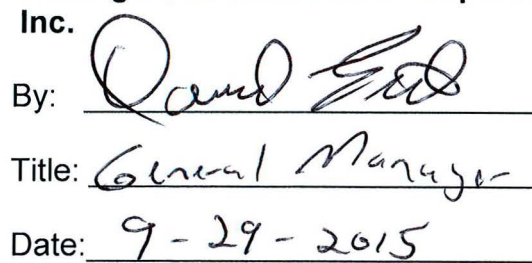 Inc.
By: David
Title: General Manager
Date: 9-29-2015